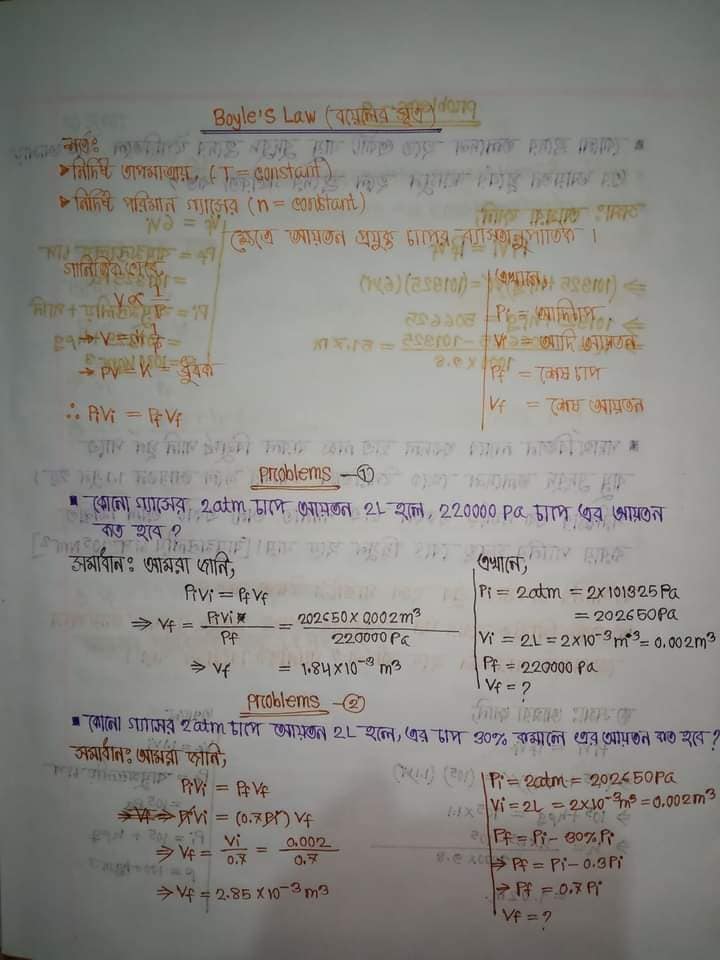 Boyle's Law (বয়েলের সূত্র)
শর্ত:
➤নির্দিষ্ট তাপমাত্রায়, (T = constant)
➤নির্দিষ্ট পরিমান গ্যাসের (n = constant)
ক্ষেত্রে আয়তন প্রযুক্ত চাপের ব্যাস্তানুপাতিক।
V ∝ 1/P
⇒ V = K 1/P
⇒ PV = K = ধ্রুবক
∴ PiVi = PfVf
এখানে,
Pi = আদি চাপ
Vi = আদি আয়তন
Pf = শেষ চাপ
Vf = শেষ আয়তন
Problems -①
▪ কোনো গ্যাসের 2atm চাপে আয়তন 2L হলে, 220000 Pa চাপে এর আয়তন
কত হবে?
সমাধান: আমরা জানি,
PiVi = PfVf
⇒ Vf = PiVi / Pf = 202650 x 0.002m³ / 220000 Pa
⇒ Vf = 1.84 x 10⁻³ m³
এখানে,
Pi = 2atm = 2x101325 Pa
= 202650 Pa
Vi = 2L = 2x10⁻³ m³ = 0.002m³
Pf = 220000 Pa
Vf = ?
Problems -②
▪ কোনো গ্যাসের 2atm চাপে আয়তন 2L হলে, এর চাপ 30% কমালে এর আয়তন কত হবে?
সমাধান: আমরা জানি,
PiVi = PfVf
⇒ PiVi = (0.7Pi) Vf
⇒ Vf = Vi / 0.7 = 0.002 / 0.7
⇒ Vf = 2.85 x 10⁻³ m³
Pi = 2atm = 202650 Pa
Vi = 2L = 2x10⁻³ m³ = 0.002 m³
Pf = Pi - 30% Pi
⇒ Pf = Pi - 0.3Pi
⇒ Pf = 0.7 Pi
Vf = ?